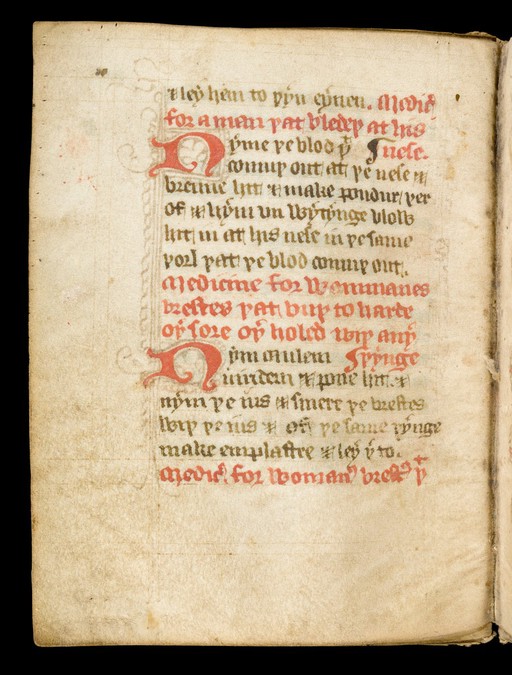 & ley hem to þyn eynen. Medic̄
for a man þat bledeþ at his
Nyme þe blod þt nese.
comiþ out at þe nese &
brenne hit & make poudur þer
of & wiþ in un wrytynge blow
hit in at his nese in þe same
þorl þat þe blod comiþ out.
Medicine for wommanes
brestes þat buþ to harde
oþer sore oþer holed wiþ any
Nym caulem þynge
uiridem & poue hit &
nym þe ius & smere þe brestes
wiþ þe ius & of þe same þynge
make emplastre & ley þer to.
Medic̄ for woman brest þt